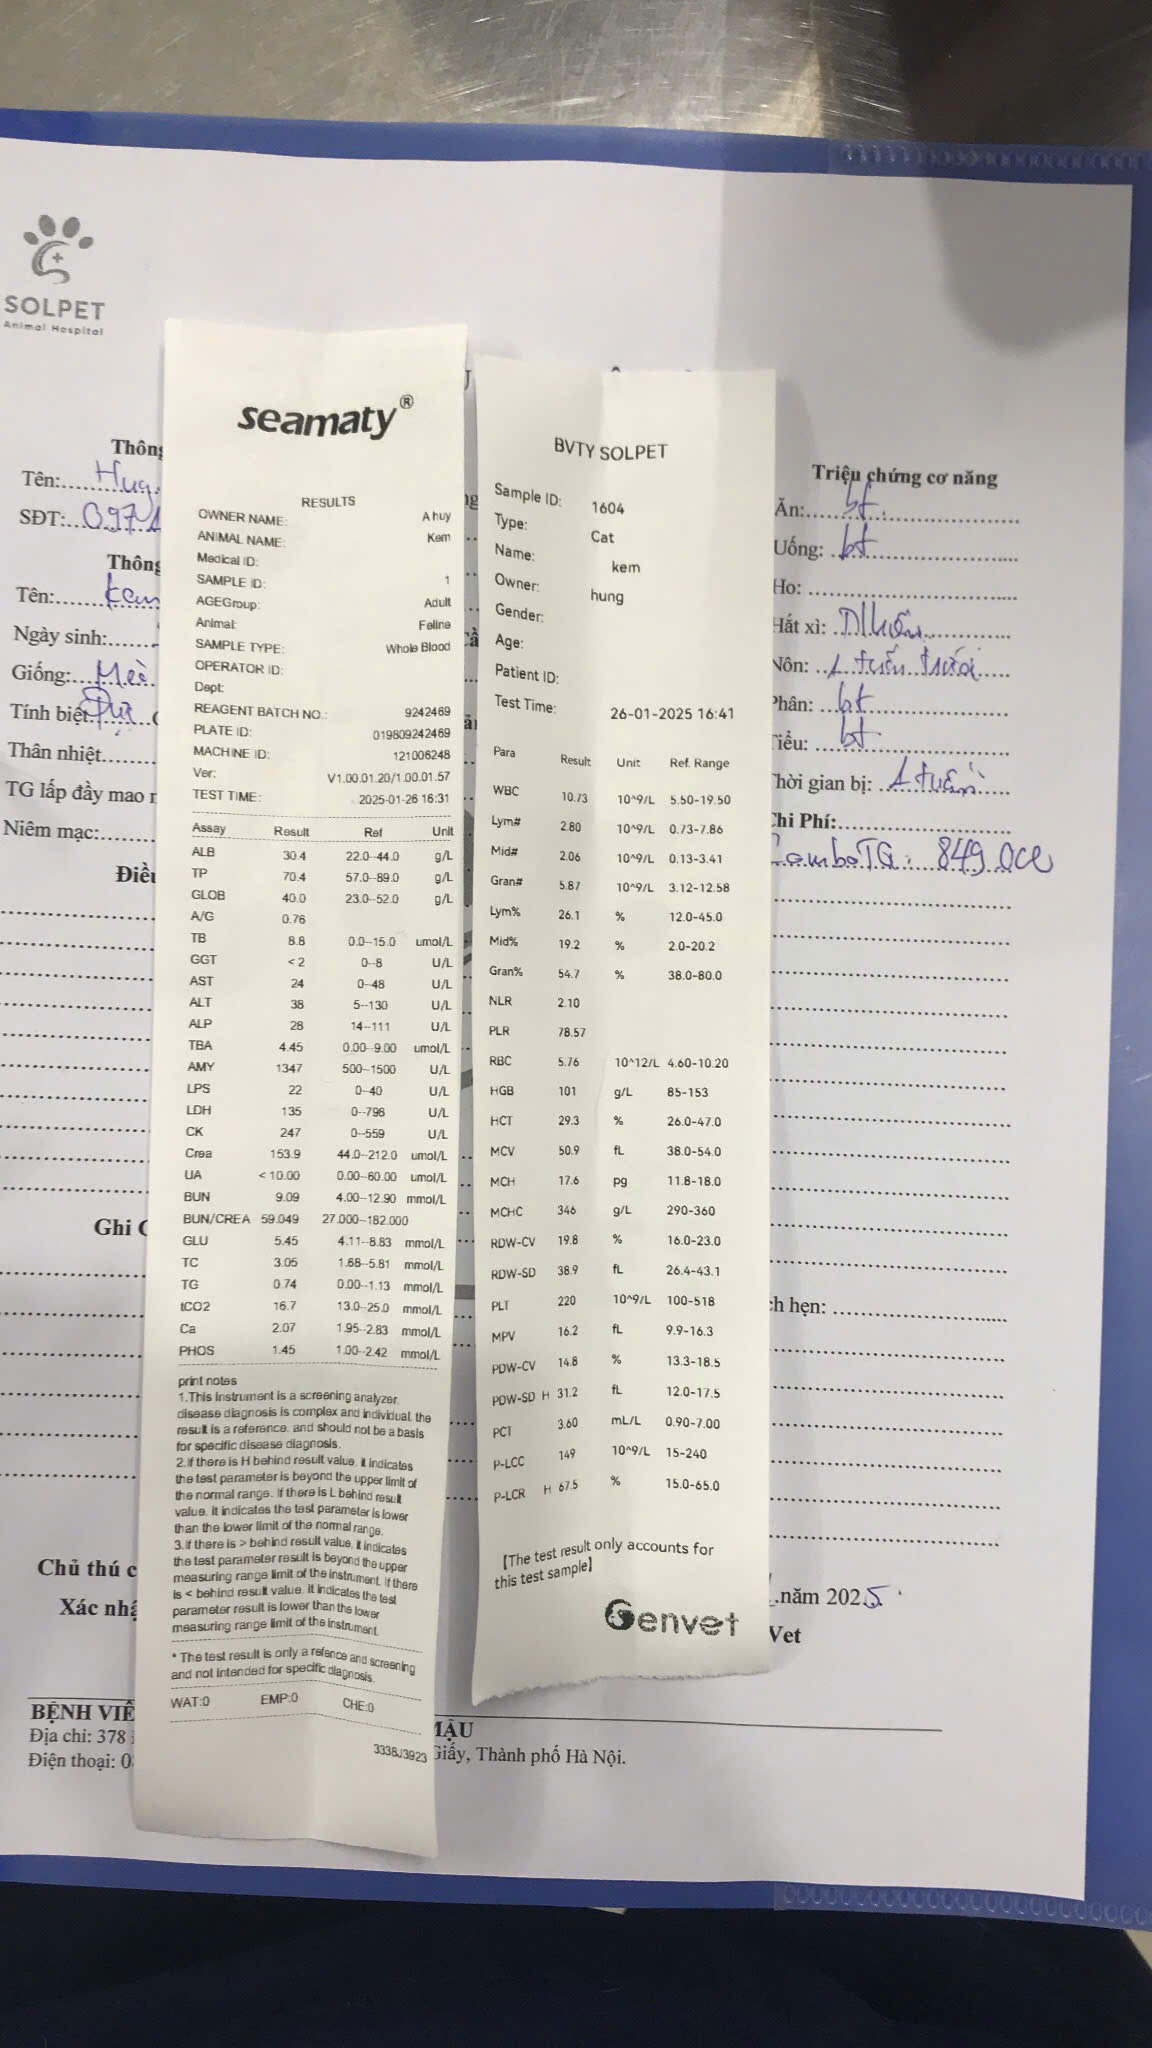 SOLPET
Animal Hospital
Thông
Tên:
SĐT:
Thông
Tên:
Ngày sinh:
Giống: Mèo
Tính biệt: Đực
Thân nhiệt
TG lấp đầy mao
Niêm mạc:
Điều
Ghi
Chủ thú
Xác nhậ
BỆNH VIỆ
Địa chỉ: 378
Điện thoại: 0
seamaty®
RESULTS
OWNER NAME: A huy
ANIMAL NAME: Kem
Medical ID:
SAMPLE ID: 1
AGEGroup: Adult
Animal: Feline
SAMPLE TYPE: Whole Blood
OPERATOR ID:
Dept:
REAGENT BATCH NO.: 9242469
PLATE ID: 019809242469
MACHINE ID: 121006248
Ver: V1.00.01.20/1.00.01.57
TEST TIME: 2025-01-26 16:31
Assay Result Ref Unit
ALB 30.4 22.0--44.0 g/L
TP 70.4 57.0--89.0 g/L
GLOB 40.0 23.0--52.0 g/L
A/G 0.76
TB 8.8 0.0--15.0 umol/L
GGT < 2 0--8 U/L
AST 24 0--48 U/L
ALT 38 5--130 U/L
ALP 28 14--111 U/L
TBA 4.45 0.00--9.00 umol/L
AMY 1347 500--1500 U/L
LPS 22 0--40 U/L
LDH 135 0--798 U/L
CK 247 0--559 U/L
Crea 153.9 44.0--212.0 umol/L
UA < 10.00 0.00--60.00 umol/L
BUN 9.09 4.00--12.90 mmol/L
BUN/CREA 59.049 27.000--182.000
GLU 5.45 4.11--8.83 mmol/L
TC 3.05 1.68--5.81 mmol/L
TG 0.74 0.00--1.13 mmol/L
tCO2 16.7 13.0--25.0 mmol/L
Ca 2.07 1.95--2.83 mmol/L
PHOS 1.45 1.00--2.42 mmol/L
print notes
1.This instrument is a screening analyzer,
disease diagnosis is complex and individual, the
result is a reference, and should not be a basis
for specific disease diagnosis.
2.if there is H behind result value, it indicates
the test parameter is beyond the upper limit of
the normal range. If there is L behind result
value, it indicates the test parameter is lower
than the lower limit of the normal range.
3.if there is > behind result value, it indicates
the test parameter result is beyond the upper
measuring range limit of the instrument. If there
is < behind result value, it indicates the test
parameter result is lower than the lower
measuring range limit of the instrument.
* The test result is only a refence and screening
and not intended for specific diagnosis.
WAT:0 EMP:0 CHE:0
3338J3923
BVTY SOLPET
Sample ID: 1604
Type: Cat
Name: kem
Owner: hung
Gender:
Age:
Patient ID:
Test Time: 26-01-2025 16:41
Para Result Unit Ref. Range
WBC 10.73 10^9/L 5.50-19.50
Lym# 2.80 10^9/L 0.73-7.86
Mid# 2.06 10^9/L 0.13-3.41
Gran# 5.87 10^9/L 3.12-12.58
Lym% 26.1 % 12.0-45.0
Mid% 19.2 % 2.0-20.2
Gran% 54.7 % 38.0-80.0
NLR 2.10
PLR 78.57
RBC 5.76 10^12/L 4.60-10.20
HGB 101 g/L 85-153
HCT 29.3 % 26.0-47.0
MCV 50.9 fL 38.0-54.0
MCH 17.6 pg 11.8-18.0
MCHC 346 g/L 290-360
RDW-CV 19.8 % 16.0-23.0
RDW-SD 38.9 fL 26.4-43.1
PLT 220 10^9/L 100-518
MPV 16.2 fL 9.9-16.3
PDW-CV 14.8 % 13.3-18.5
PDW-SD H 31.2 fL 12.0-17.5
PCT 3.60 mL/L 0.90-7.00
P-LCC 149 10^9/L 15-240
P-LCR H 67.5 % 15.0-65.0
【The test result only accounts for
this test sample】
Genvet
Triệu chứng cơ năng
Ăn: bt
Uống: bt
Ho:
Hắt xì: Nhiều
Nôn: 1 tuần trước
Phân: bt
Tiểu: bt
Thời gian bị: 1 tuần
Chi Phí:
Combo TG: 849.000
ch hẹn:
năm 2025
Vet
MẬU
Giấy, Thành phố Hà Nội.